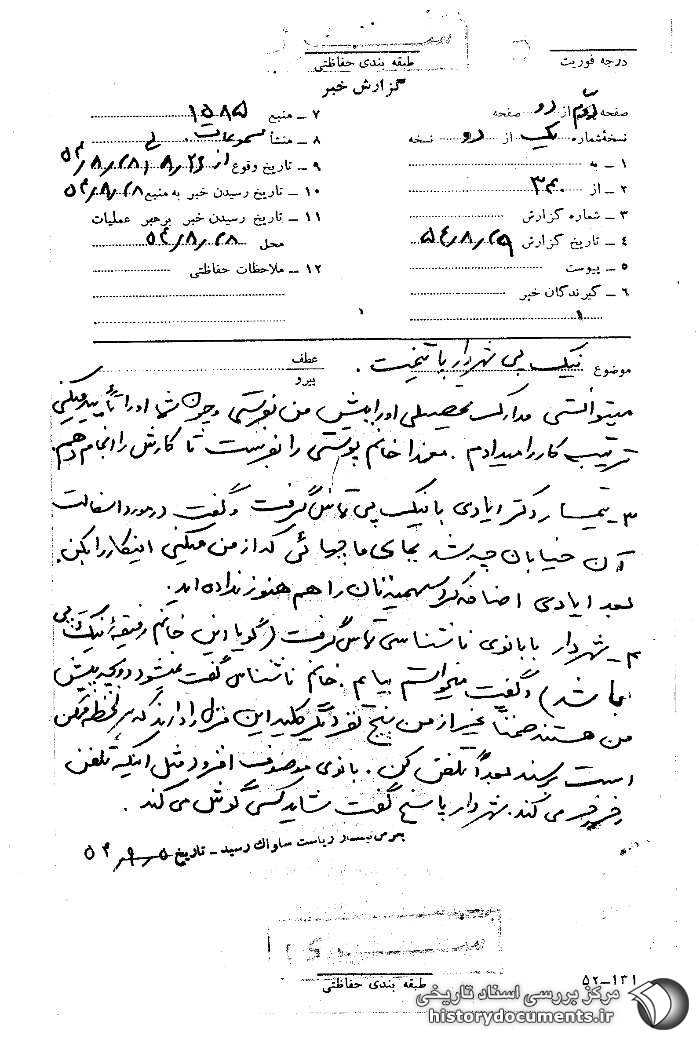 درجه فوریت
طبقه بندی حفاظتی
گزارش خبر
صفحه دوم از دو صفحه
نسخهٔ شماره یک از دو نسخه
۱ – به
۲ – از ۳۴۰
۳ – شماره گزارش
۴ – تاریخ گزارش ۵۴/۸/۲۹
۵ – پیوست
۶ – گیرندگان خبر
۱
۷ – منبع ۱۵۸۵
۸ – منشأ
۹ – تاریخ وقوع از
۱۰ – تاریخ رسیدن خبر به منبع
۱۱ – تاریخ رسیدن خبر برهبر عملیات
محل
۱۲ – ملاحظات حفاظتی
موضوع نیک پی شهردار پایتخت .
عطف
پیرو
میتوانستی مدارک تحصیلی او را پیش من بفرستی و چون شما او را تأیید میکنی
ترتیب کار را میدادم . معهذا خانم را بفرست تا کارش را انجام دهم.
۳ـ تیمسار دکتر ایادی با نیک پی تماس گرفت و گفت در مورد اسفالت
آن خیابان چه شد بجای ماچ هائی که از من میکنی اینکار را بکن.
بعد ایادی اضافه کرد سهمیه نان را هم هنوز نداده اید.
۴ـ شهردار با بانوی ناشناسی تماس گرفت (گویا این خانم رفیقهٔ نیک پی
باشد) و گفت میخواستم بیایم . خانم ناشناس گفت نمیشود دو بچه پیش
من هستند ضمناً غیر از من پنج نفر دیگر کلید این منزل را دارند که هر لحظه ممکن
است برسند بعداً تلفن کن . بانوی موصوف افزود مثل اینکه تلفن
خرخر می کند. شهردار پاسخ گفت شاید کسی گوش می کند .
بعرض تیمسار ریاست ساواک رسید – تاریخ
طبقه بندی حفاظتی
۵۲–۱۳۱
مرکز بررسی اسناد تاریخی
historydocuments.ir